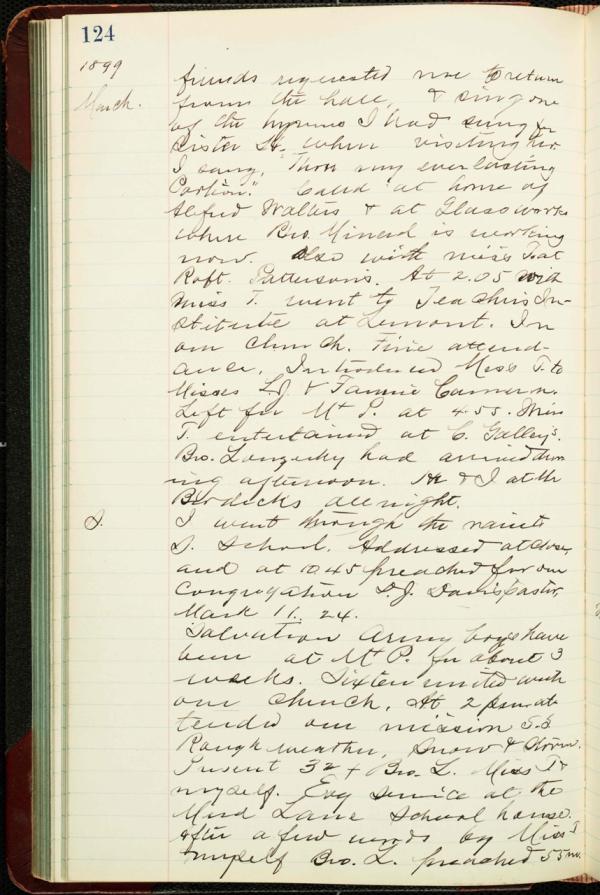 124
1899
March.
friends requested me to return
from the hall, & sing one
of the hymns I had sung for
Sister St. when visiting her
I sang, "Thou my everlasting
Portion." Called at home of
Alfred Walters & at Glassworks
where Bro. Minerd is working
now. Also with Miss T. at
Robt. Pattersons. At 2.05 with
Miss T. went to Teachers In-
stitute at Lemont. In
our church. Fine attend-
ance. Introduced Miss T. to
Misses L.J. & Fannie Cameron.
Left for Mt P. at 4.55. Miss
T. entertained at C. Galley's.
Bro. had arrived dur-
ing afternoon. He & I at the
all night.
S.
I went through the rain to
S. School. Addressed at close,
and at 10.45 preached for our
Congregation D.J. Davis Pastor,
Mark 11. 24.
Salvation Army boys have
been at Mt P. for about 3
weeks. Sixteen united with
our church. At 2 p.m. at-
tended our mission S.S.
Rough weather, snow & storm.
Present 32 + Bro. L. Miss T. &
myself. Evg service at the
Mud Lane School house.
After a few words by Miss T
& myself Bro. L. preached 55 m.